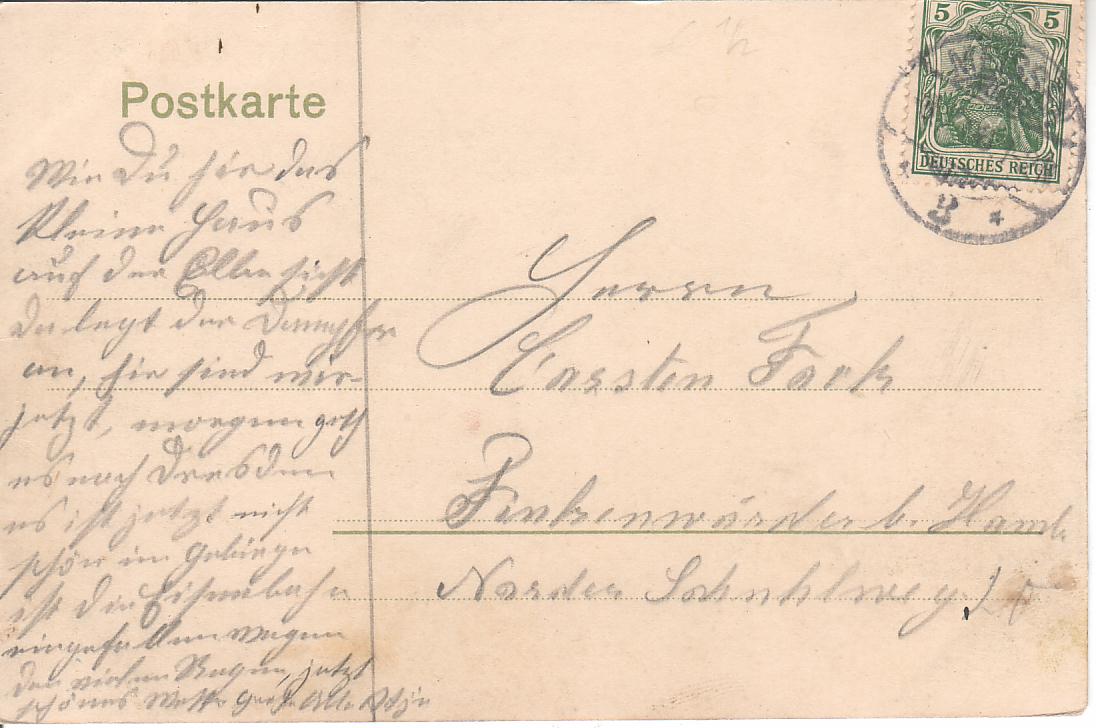 Postkarte
5 5
DEUTSCHES REICH
Wie Du hir das
kleine Haus
auf der Elbe sieht
da legt der Dampfer
an, hir sind wir
jetzt, morgen geth
es nach Dresden
es ist jetzt nicht
schön im Gebirge
ist die Eisenbahn
eingefallen wegen
den vielen Regen, jetzt
schönes
Herrn
Carsten Fock
Finkenwärder b. Hamb.
Norder Schuhlweg